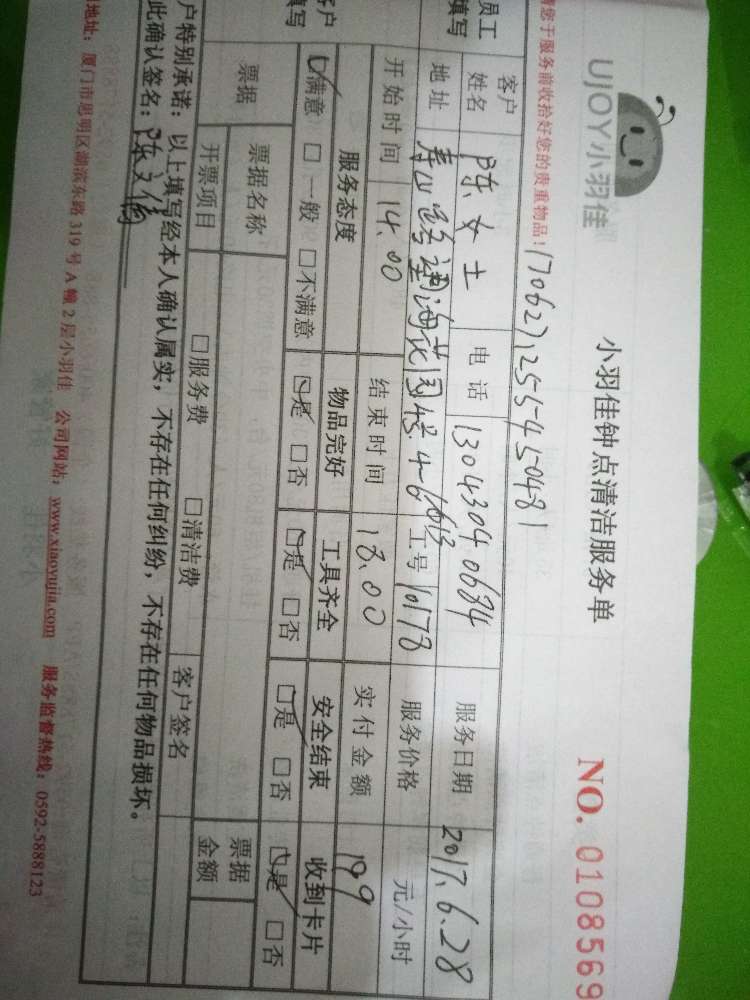 UJOY小羽佳
小羽佳钟点清洁服务单
NO. 0108569
您于服务前收拾好您的贵重物品! 170627,255-450481
员工
填写
客户
姓名 陈女士 电话 13043040684 服务日期 2017.6.28
地址 望海花园 工号 10178 服务价格 元/小时
开始时间 14.00 结束时间 18.00 实付金额 199
客户
填写
服务态度 物品完好 工具齐全 安全结束 收到卡片
☑满意 □一般 □不满意 ☑是 □否 ☑是 □否 ☑是 □否 ☑是 □否
票据 票据名称 票据
金额
开票项目 □服务费 □清洁费 客户签名
户特别承诺:以上填写经本人确认属实,不存在任何纠纷,不存在任何物品损坏。
此确认签名:陈
地址:厦门市思明区湖滨东路 319 号 A 幢 2 层小羽佳 公司网站:www.xiaoyujia.com 服务监督热线:0592-5888123